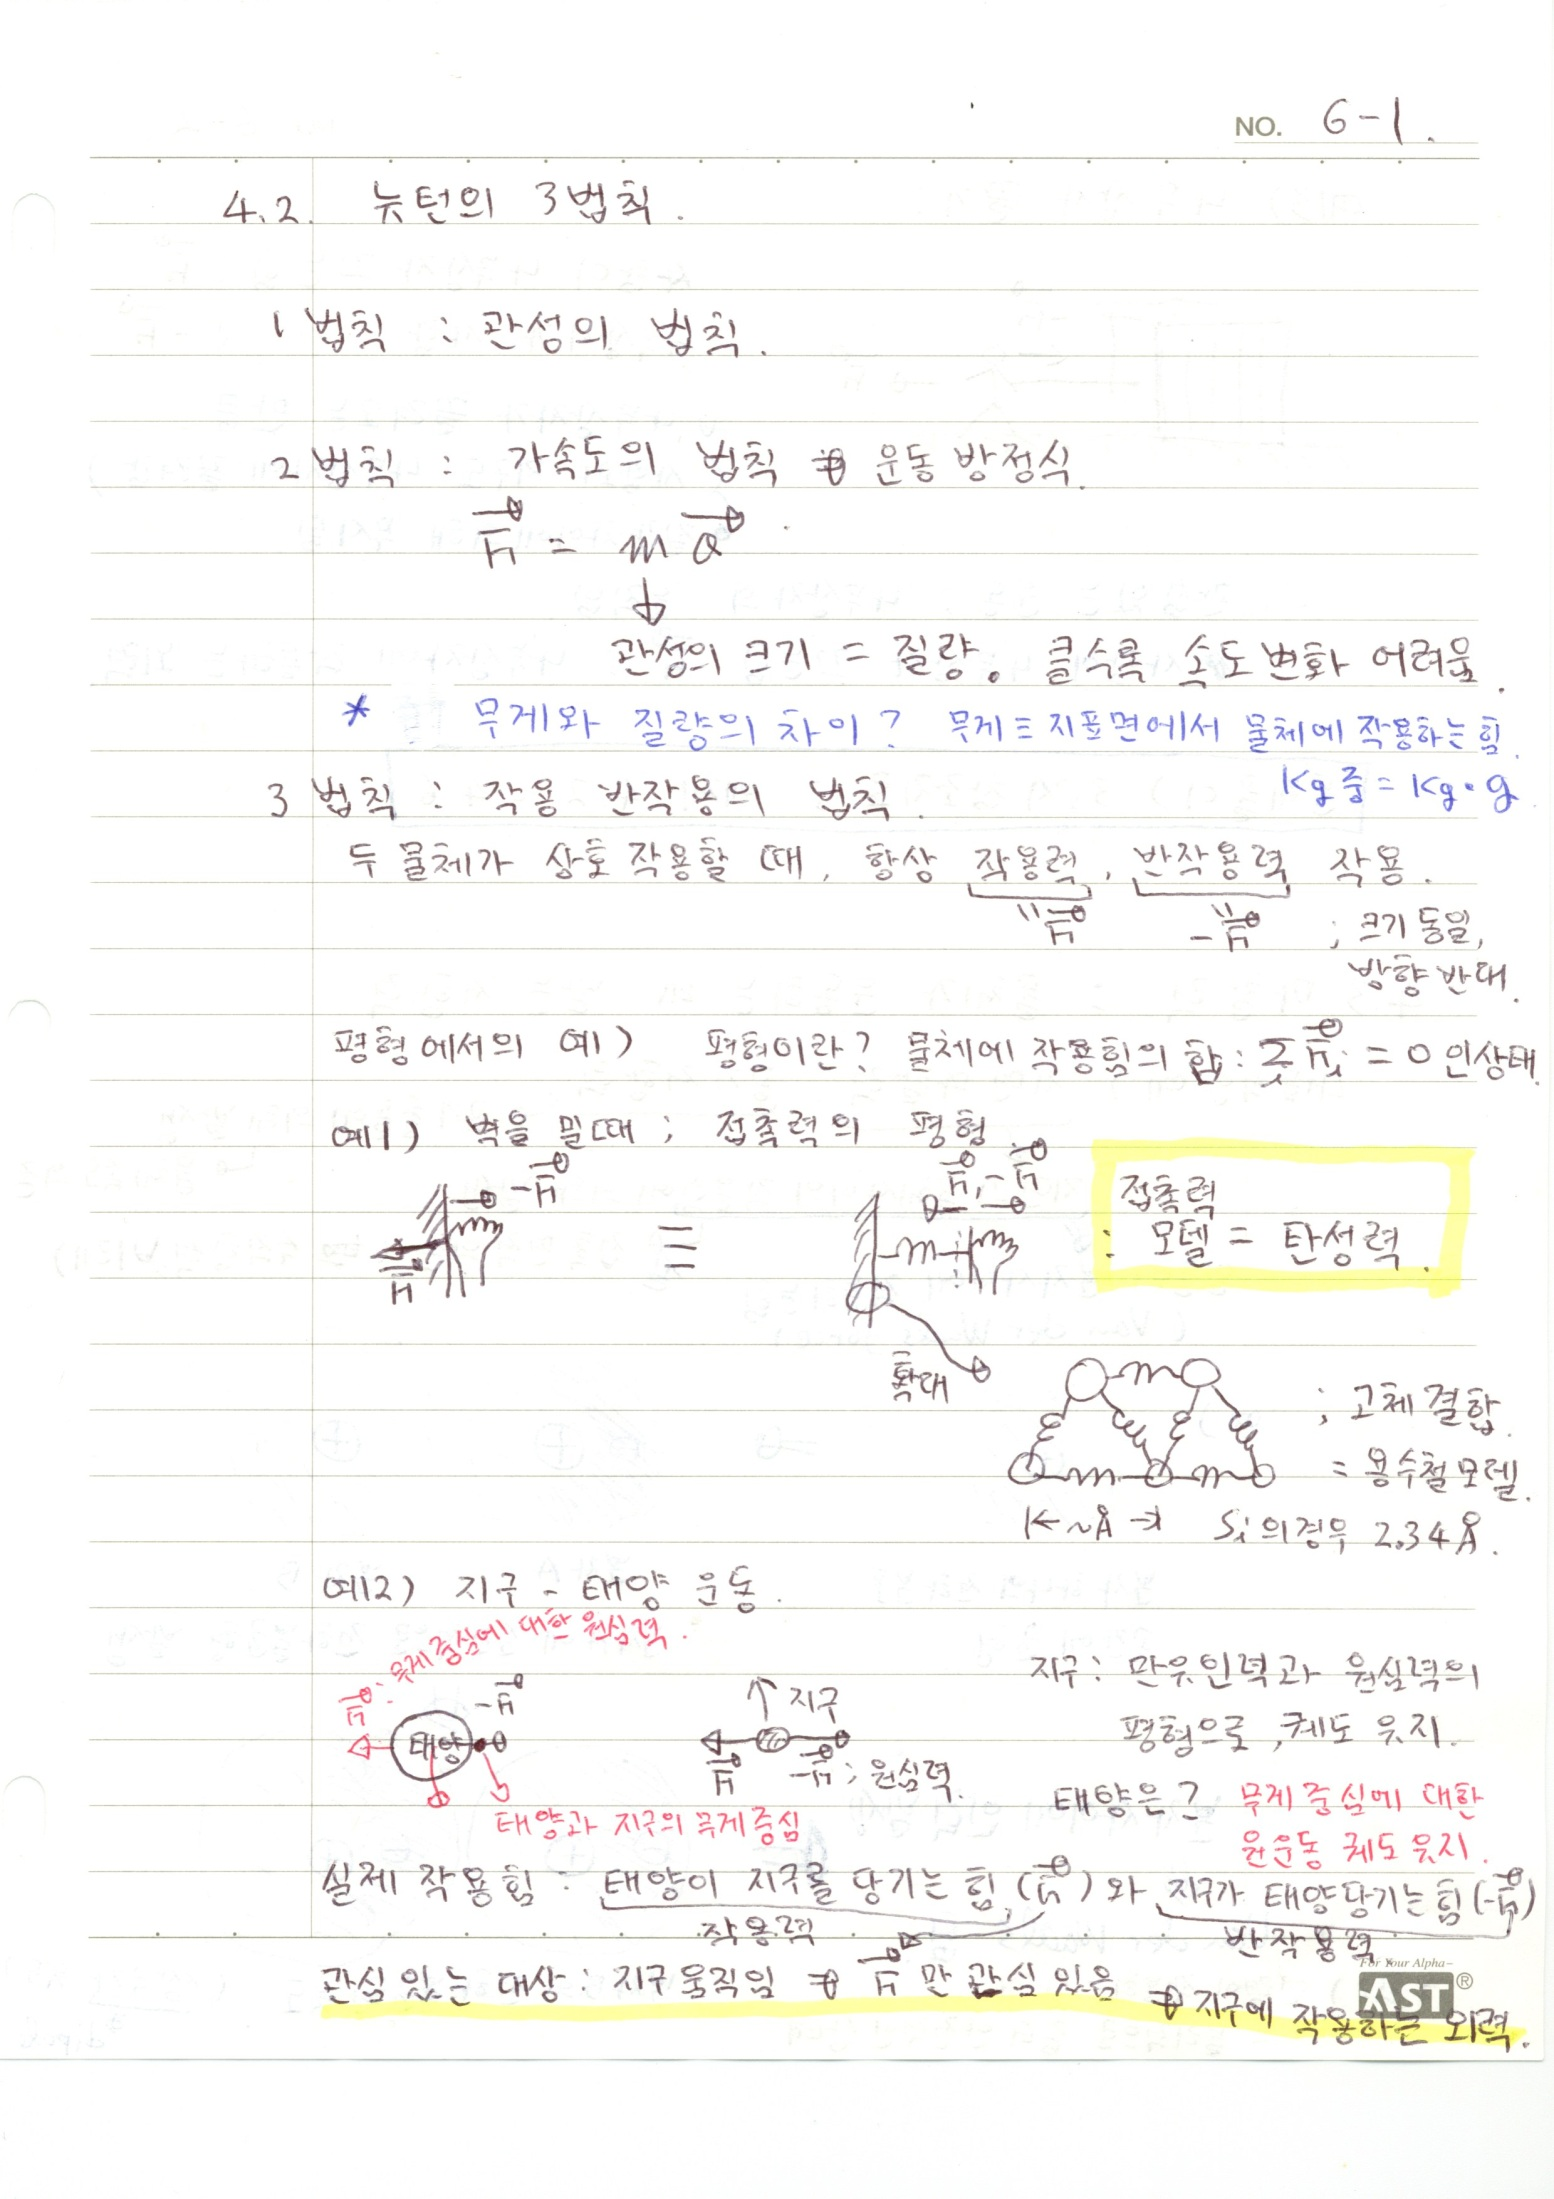 NO. 6-1.
4.2. 뉴턴의 3법칙.
1법칙 : 관성의 법칙.
2법칙 : 가속도의 법칙 ⇒ 운동방정식.
F⃗ = m a⃗
↓
관성의 크기 = 질량. 클수록 속도변화 어려움.
* 무게와 질량의 차이? 무게 ≡ 지표면에서 물체에 작용하는 힘.
kg중 = kg·g
3법칙 : 작용 반작용의 법칙.
두 물체가 상호작용할 때, 항상 작용력, 반작용력 작용.
" F⃗ " -F⃗ ; 크기 동일,
방향 반대.
평형에서의 예) 평형이란? 물체에 작용힘의 합 : Σᵢ F⃗ᵢ = 0 인상태.
예1) 벽을 밀때 ; 접촉력의 평형
-F⃗
F⃗
≡
F⃗, -F⃗
접촉력
: 모델 = 탄성력.
확대
; 고체결합.
= 용수철모델.
|← ~Å →| Si의경우 2.34Å.
예2) 지구 - 태양 운동.
F⃗ : 무게중심에 대한 원심력.
-F⃗
태양
태양과 지구의 무게중심
지구
F⃗
-F⃗ ; 원심력.
지구: 만유인력과 원심력의
평형으로, 궤도 유지.
태양은? 무게중심에 대한
원운동 궤도유지.
실제 작용힘 : 태양이 지구를 당기는 힘 (F⃗) 와 지구가 태양당기는힘 (-F⃗)
작용력 반작용력
관심있는 대상 : 지구움직임 ⇒ F⃗ 만 관심있음 ⇒ 지구에 작용하는 외력.
For Your Alpha~
AST®